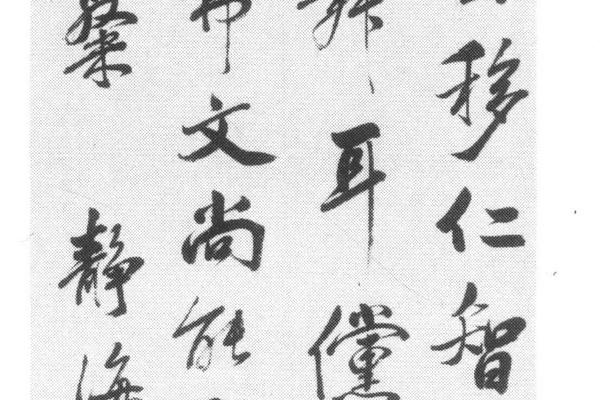 移仁智
耳儻
文尚能
粲靜海